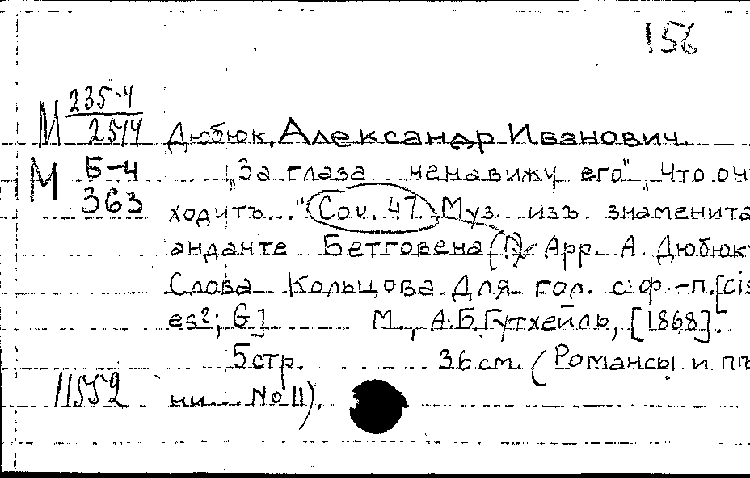 156
М 235-4
2514
Дюбюк, Александр Иванович.
М Б-4
363
„За глаза ненавижу его" „Что он
ходитъ..." (Соч. 47. Муз. изъ знаменита
анданте Бетговена (!) Арр. А. Дюбюк
Слова Кольцова. Для гол. с ф.-п. [cis
es²; G] М., А.Б. Гутхейль, [1868].
5 стр. 36 см. (Романсы и пѣ
11552 ни No 11).